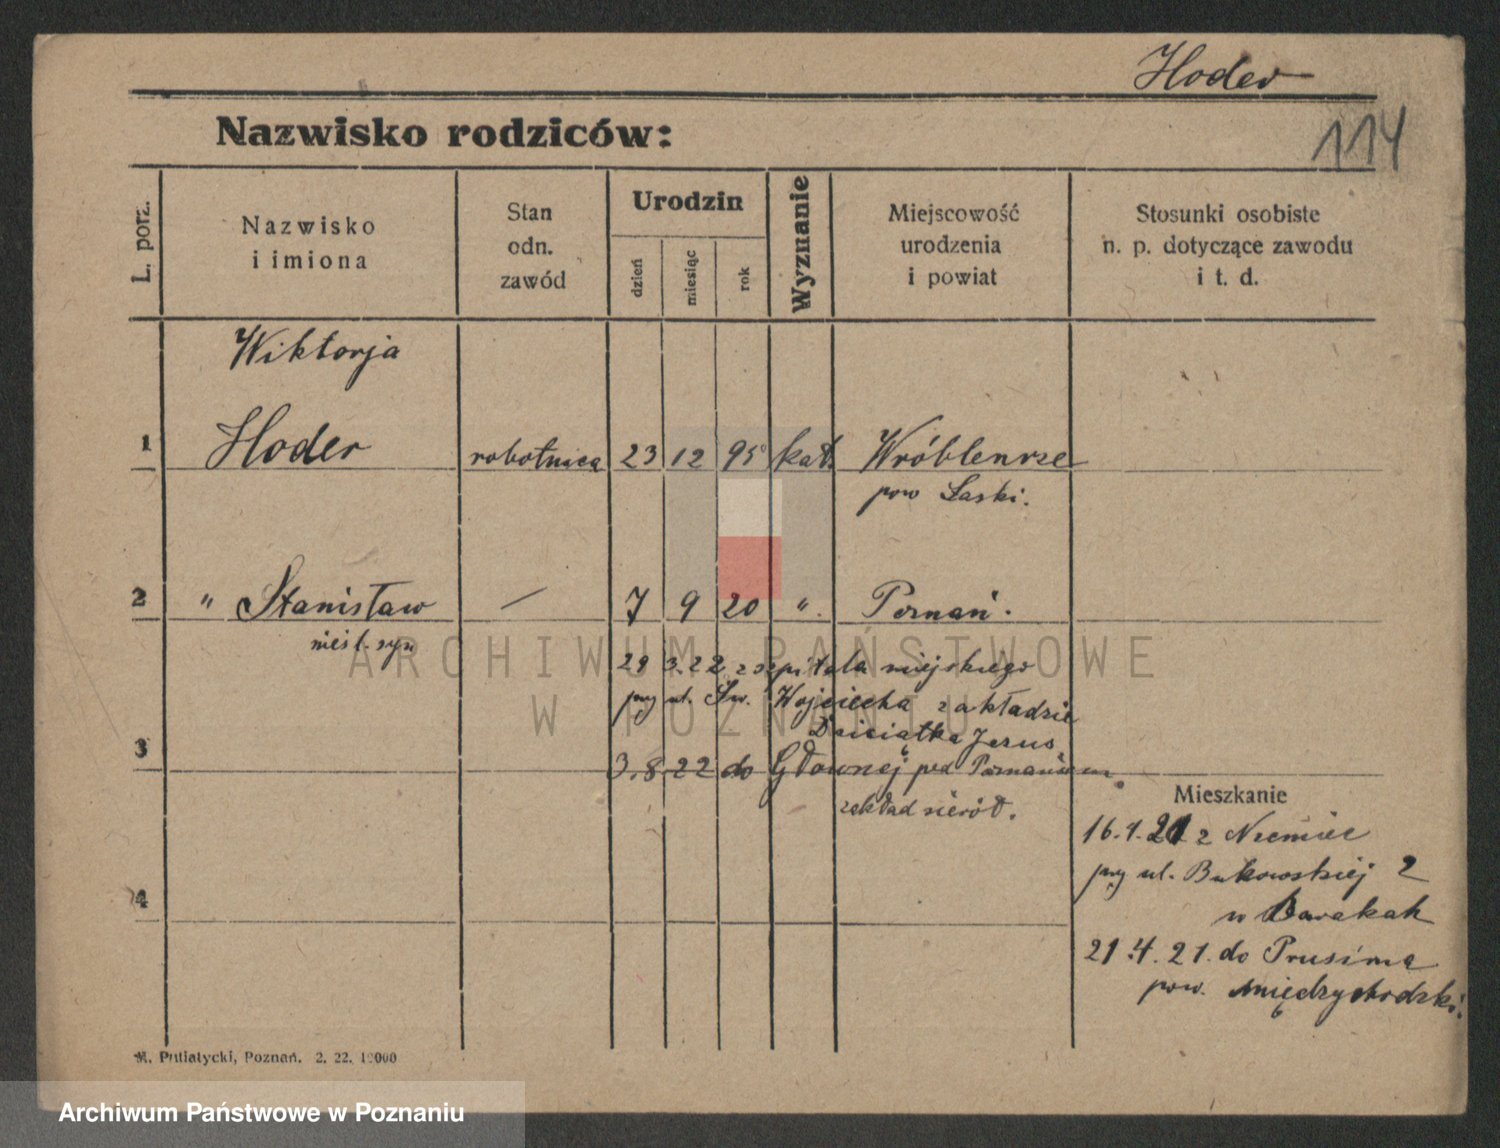 Hoder
114
Nazwisko rodziców:
L. porz.
Nazwisko
i imiona
Stan
odn.
zawód
Urodzin
dzień
miesiąc
rok
Wyznanie
Miejscowość
urodzenia
i powiat
Stosunki osobiste
n. p. dotyczące zawodu
i t. d.
Wiktorja
1 Hoder robotnica 23 12 95 kat.
pow Łaski.
2 " Stanisław — 7 9 20 ". Poznań.
nieśl. syn
29 3.22 z szpitala miejskiego
przy ul. Św. Wojciecha zakładzie
Dzieciątka Jezus
3
3.8.22 do Głównej pod Poznaniem.
zakład sierót.
Mieszkanie
16.1.21 z Niemiec
przy ul. Bukowskiej 2
w Barakah
4
21.4.21. do Prusima
pow. międzychodzki.
M. Putiatycki, Poznań. 2. 22. 10000
ARCHIWUM PAŃSTWOWE
W POZNANIU
Archiwum Państwowe w Poznaniu